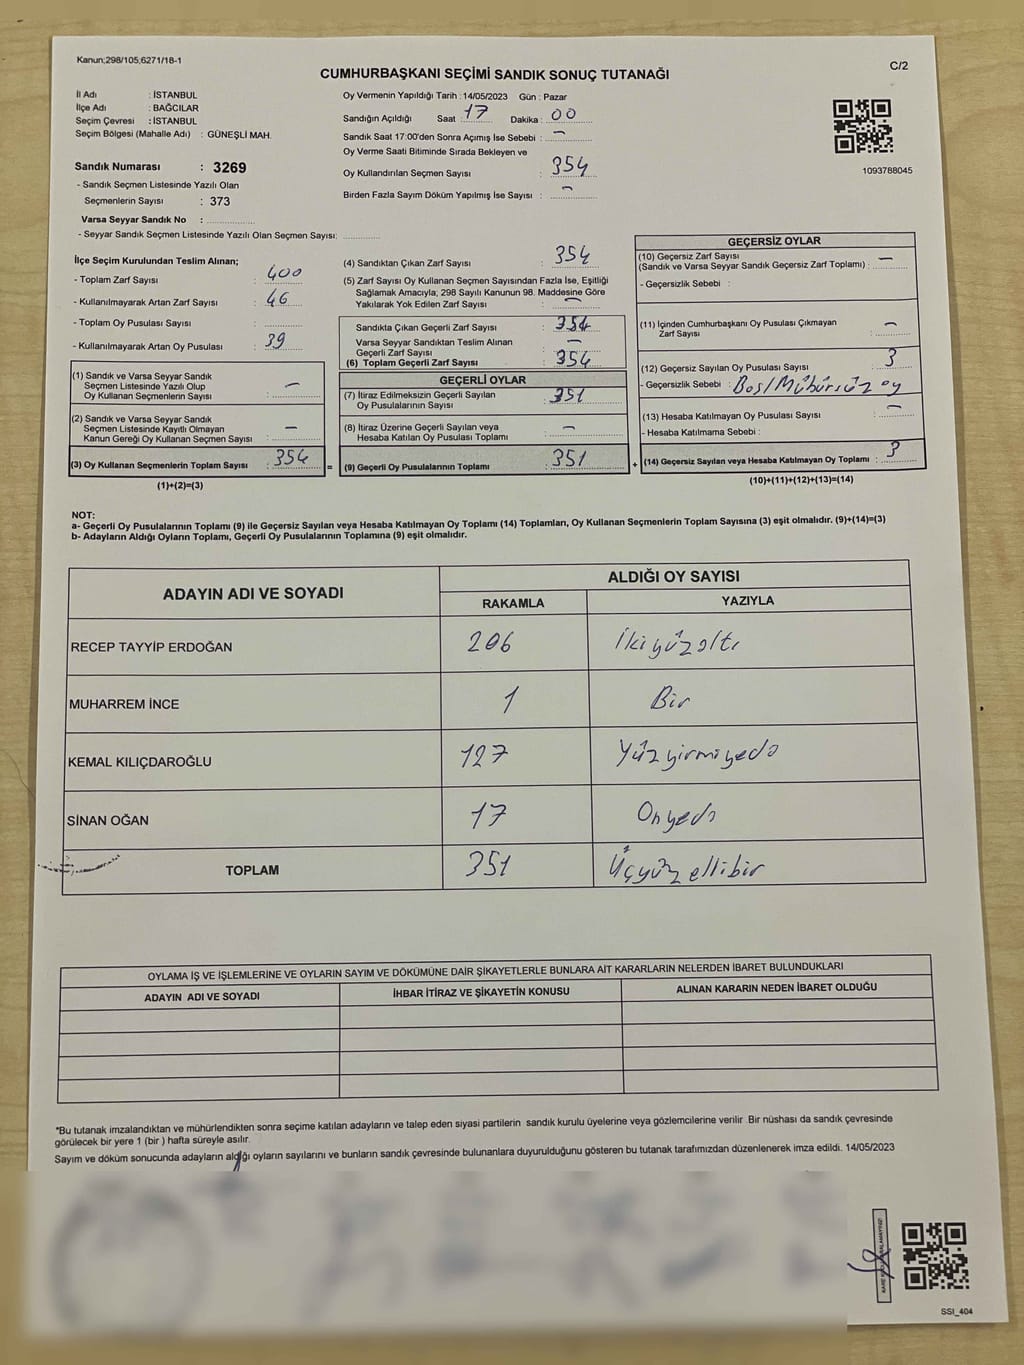 Kanun;298/105,6271/18-1
C/2
CUMHURBAŞKANI SEÇİMİ SANDIK SONUÇ TUTANAĞI
İl Adı : İSTANBUL
İlçe Adı : BAĞCILAR
Seçim Çevresi : İSTANBUL
Seçim Bölgesi (Mahalle Adı) : GÜNEŞLİ MAH.
Sandık Numarası : 3269
- Sandık Seçmen Listesinde Yazılı Olan
Seçmenlerin Sayısı : 373
Varsa Seyyar Sandık No :
- Seyyar Sandık Seçmen Listesinde Yazılı Olan Seçmen Sayısı:
Oy Vermenin Yapıldığı Tarih :14/05/2023 Gün : Pazar
Sandığın Açıldığı Saat : 17 Dakika : 00
Sandık Saat 17:00'den Sonra Açımış İse Sebebi : -
Oy Verme Saati Bitiminde Sırada Bekleyen ve
Oy Kullandırılan Seçmen Sayısı : 354
Birden Fazla Sayım Döküm Yapılmış İse Sayısı : -
1093788045
İlçe Seçim Kurulundan Teslim Alınan;
- Toplam Zarf Sayısı : 400
- Kullanılmayarak Artan Zarf Sayısı : 46
- Toplam Oy Pusulası Sayısı :
- Kullanılmayarak Artan Oy Pusulası : 39
(1) Sandık ve Varsa Seyyar Sandık
Seçmen Listesinde Yazılı Olup
Oy Kullanan Seçmenlerin Sayısı : -
(2) Sandık ve Varsa Seyyar Sandık
Seçmen Listesinde Kayıtlı Olmayan
Kanun Gereği Oy Kullanan Seçmen Sayısı : -
(3) Oy Kullanan Seçmenlerin Toplam Sayısı : 354
(1)+(2)=(3)
=
(4) Sandıktan Çıkan Zarf Sayısı : 354
(5) Zarf Sayısı Oy Kullanan Seçmen Sayısından Fazla İse, Eşitliği
Sağlamak Amacıyla, 298 Sayılı Kanunun 98. Maddesine Göre
Yakılarak Yok Edilen Zarf Sayısı : -
Sandıkta Çıkan Geçerli Zarf Sayısı : 354
Varsa Seyyar Sandıktan Teslim Alınan
Geçerli Zarf Sayısı : -
(6) Toplam Geçerli Zarf Sayısı : 354
GEÇERLİ OYLAR
(7) İtiraz Edilmeksizin Geçerli Sayılan
Oy Pusulalarının Sayısı : 351
(8) İtiraz Üzerine Geçerli Sayılan veya
Hesaba Katılan Oy Pusulası Toplamı : -
(9) Geçerli Oy Pusulalarının Toplamı : 351
+
GEÇERSİZ OYLAR
(10) Geçersiz Zarf Sayısı
(Sandık ve Varsa Seyyar Sandık Geçersiz Zarf Toplamı) : -
- Geçersizlik Sebebi :
(11) İçinden Cumhurbaşkanı Oy Pusulası Çıkmayan
Zarf Sayısı : -
(12) Geçersiz Sayılan Oy Pusulası Sayısı : 3
- Geçersizlik Sebebi : Boş/Mühürsüz oy
(13) Hesaba Katılmayan Oy Pusulası Sayısı : -
- Hesaba Katılmama Sebebi :
(14) Geçersiz Sayılan veya Hesaba Katılmayan Oy Toplamı : 3
(10)+(11)+(12)+(13)=(14)
NOT:
a- Geçerli Oy Pusulalarının Toplamı (9) ile Geçersiz Sayılan veya Hesaba Katılmayan Oy Toplamı (14) Toplamları, Oy Kullanan Seçmenlerin Toplam Sayısına (3) eşit olmalıdır. (9)+(14)=(3)
b- Adayların Aldığı Oyların Toplamı, Geçerli Oy Pusulalarının Toplamına (9) eşit olmalıdır.
ADAYIN ADI VE SOYADI ALDIĞI OY SAYISI
RAKAMLA YAZIYLA
RECEP TAYYİP ERDOĞAN 206 İkiyüzaltı
MUHARREM İNCE 1 Bir
KEMAL KILIÇDAROĞLU 127 Yüzyirmiyedi
SİNAN OĞAN 17 Onyedi
TOPLAM 351 Üçyüzellibir
OYLAMA İŞ VE İŞLEMLERİNE VE OYLARIN SAYIM VE DÖKÜMÜNE DAİR ŞİKAYETLERLE BUNLARA AİT KARARLARIN NELERDEN İBARET BULUNDUKLARI
ADAYIN ADI VE SOYADI İHBAR İTİRAZ VE ŞİKAYETİN KONUSU ALINAN KARARIN NEDEN İBARET OLDUĞU
*Bu tutanak imzalandıktan ve mühürlendikten sonra seçime katılan adayların ve talep eden siyasi partilerin sandık kurulu üyelerine veya gözlemcilerine verilir. Bir nüshası da sandık çevresinde
görülecek bir yere 1 (bir ) hafta süreyle asılır.
Sayım ve döküm sonucunda adayların aldığı oyların sayılarını ve bunların sandık çevresinde bulunanlara duyurulduğunu gösteren bu tutanak tarafımızdan düzenlenerek imza edildi. 14/05/2023
SSI_404